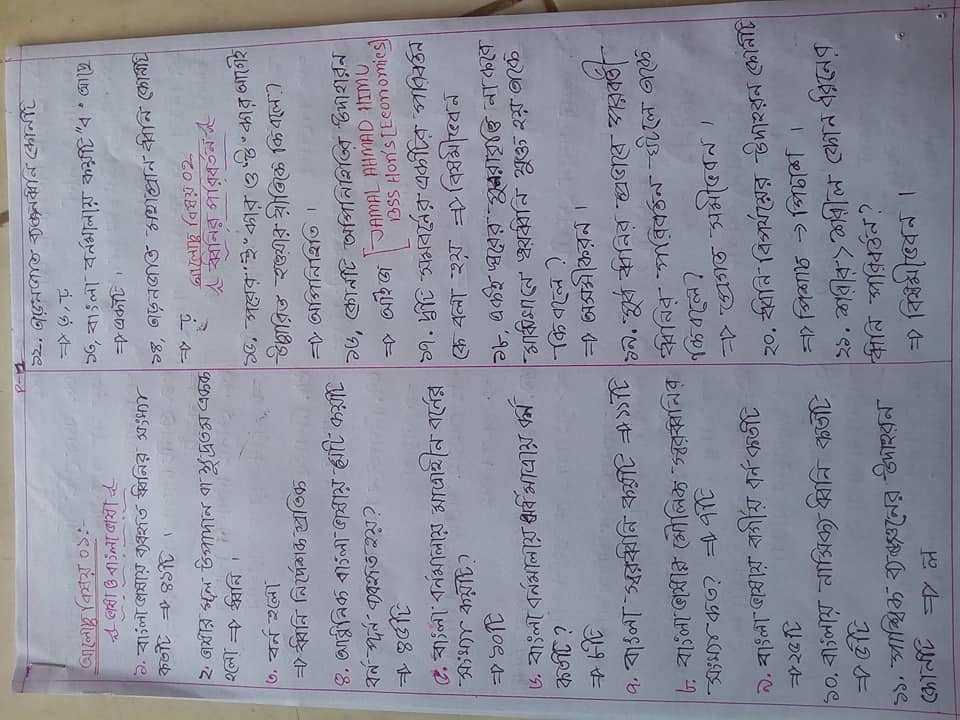 P-1
আলোচ্য বিষয় ০১:-
ভাষা ও বাংলা ভাষা
১. বাংলা ভাষায় ব্যবহৃত ধ্বনির সংখ্যা
কতটি ⇒ ৪১টি ।
২. ভাষার মূল উপাদান বা ক্ষুদ্রতম একক
হলো ⇒ ধ্বনি ।
৩. বর্ন হলো
⇒ ধ্বনি নির্দেশক প্রতিক
৪. আধুনিক বাংলা ভাষায় মোট কয়টি
বর্ন পূর্ন ব্যবহৃত হয়?
⇒ ৪৫টি
৫. বাংলা বর্নমালায় মাত্রাহীন বর্নের
সংখ্যা কয়টি?
⇒ ১০টি
৬. বাংলা বর্নমালায় অর্ধমাত্রায় বর্ন
কতটি ?
⇒ ৮টি
৭. বাংলা স্বরধ্বনি কয়টি ⇒ ১১টি
৮. বাংলা ভাষার মৌলিক স্বরধ্বনির
সংখ্যা কত? ⇒ ৭টি
৯. বাংলা ভাষায় বর্গীয় বর্ন কতটি
⇒ ২৫টি
১০. বাংলায় নাসিক্য ধ্বনি কতটি
⇒ ৫টি
১১. পার্শ্বিক ব্যঞ্জনের উদাহরন
কোনটি ⇒ ল
১২. তাড়নজাত ব্যঞ্জনধ্বনি কোনটি
⇒ ড়, ঢ়
১৩, বাংলা বর্নমালায় কয়টি "ব" আছে
⇒ একটি ।
১৪, তাড়নজাত মহাপ্রান ধ্বনি কোনটি
⇒ ঢ়
আলোচ্য বিষয় ০২
ধ্বনির পরিবর্তন
১৫. পরের "ই" কার ও "উ" কার আগেই
উচ্চারিত হওয়ার রীতিকে কি বলে?
⇒ অপিনিহিতি ।
১৬, কোনটি অপিনিহিতির উদাহরন
⇒ আইজ [JAMAL AHMAD HIMU
BSS Hon's [Economics]
১৭. দুটি সমবর্নের একটির পরিবর্তন
কে বলা হয় ⇒ বিষমীভবন
১৮, একই স্বরের পুনরাবৃত্তি না করে
মাঝখানে স্বরধ্বনি যুক্ত হয় তাকে
কি বলে ?
⇒ অসমীকরন ।
১৯. পূর্ব ধ্বনির প্রভাবে পরবর্তী
ধ্বনির পরিবর্তন ঘটলে তাকে
কি বলে?
⇒ প্রগত সমীভবন ।
২০. ধ্বনি বিপর্যয়ের উদাহরন কোনটি
⇒ পিশাচ → পিচাশ ।
২১. শরীর > শরীল কোন ধরনের
ধ্বনি পরিবর্তন?
⇒ বিষমীভবন ।